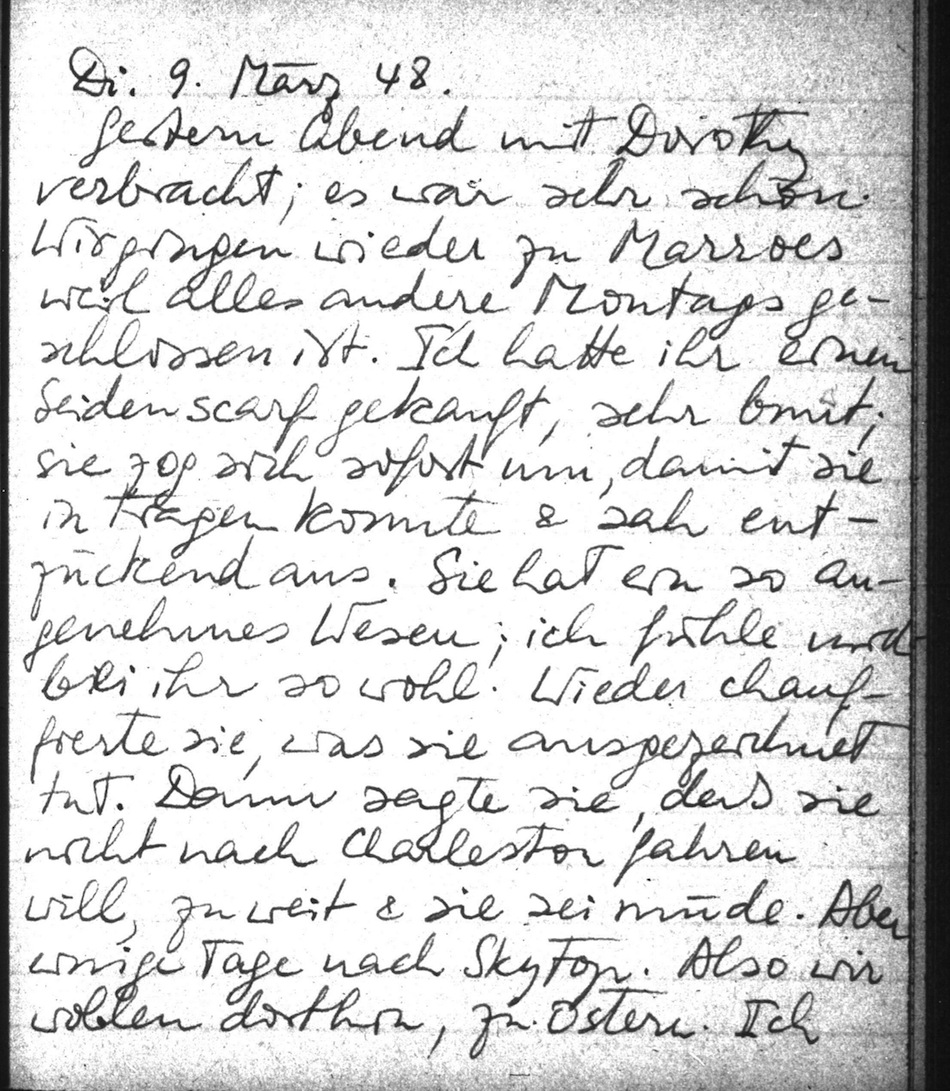 Di. 9. März 48.
Gestern Abend mit Dorothy
verbracht; es war sehr schön.
Wir gingen wieder zu Marzoes
weil alles andere Montags ge-
schlossen ist. Ich hatte ihr einen
Seidenscarf gekauft, sehr bunt;
sie zog sich sofort um, damit sie
in tragen konnte & sah ent-
zückend aus. Sie hat ein so an-
genehmes Wesen; ich fühle mich
bei ihr so wohl. Wieder chauf-
fierte sie, was sie ausgezeichnet
tut. Dann sagte sie, daß sie
nicht nach Charleston fahren
will, zu weit & sie sei müde. Aber
einige Tage nach Skytop. Also wir
wollen dorthin, zu Ostern. Ich